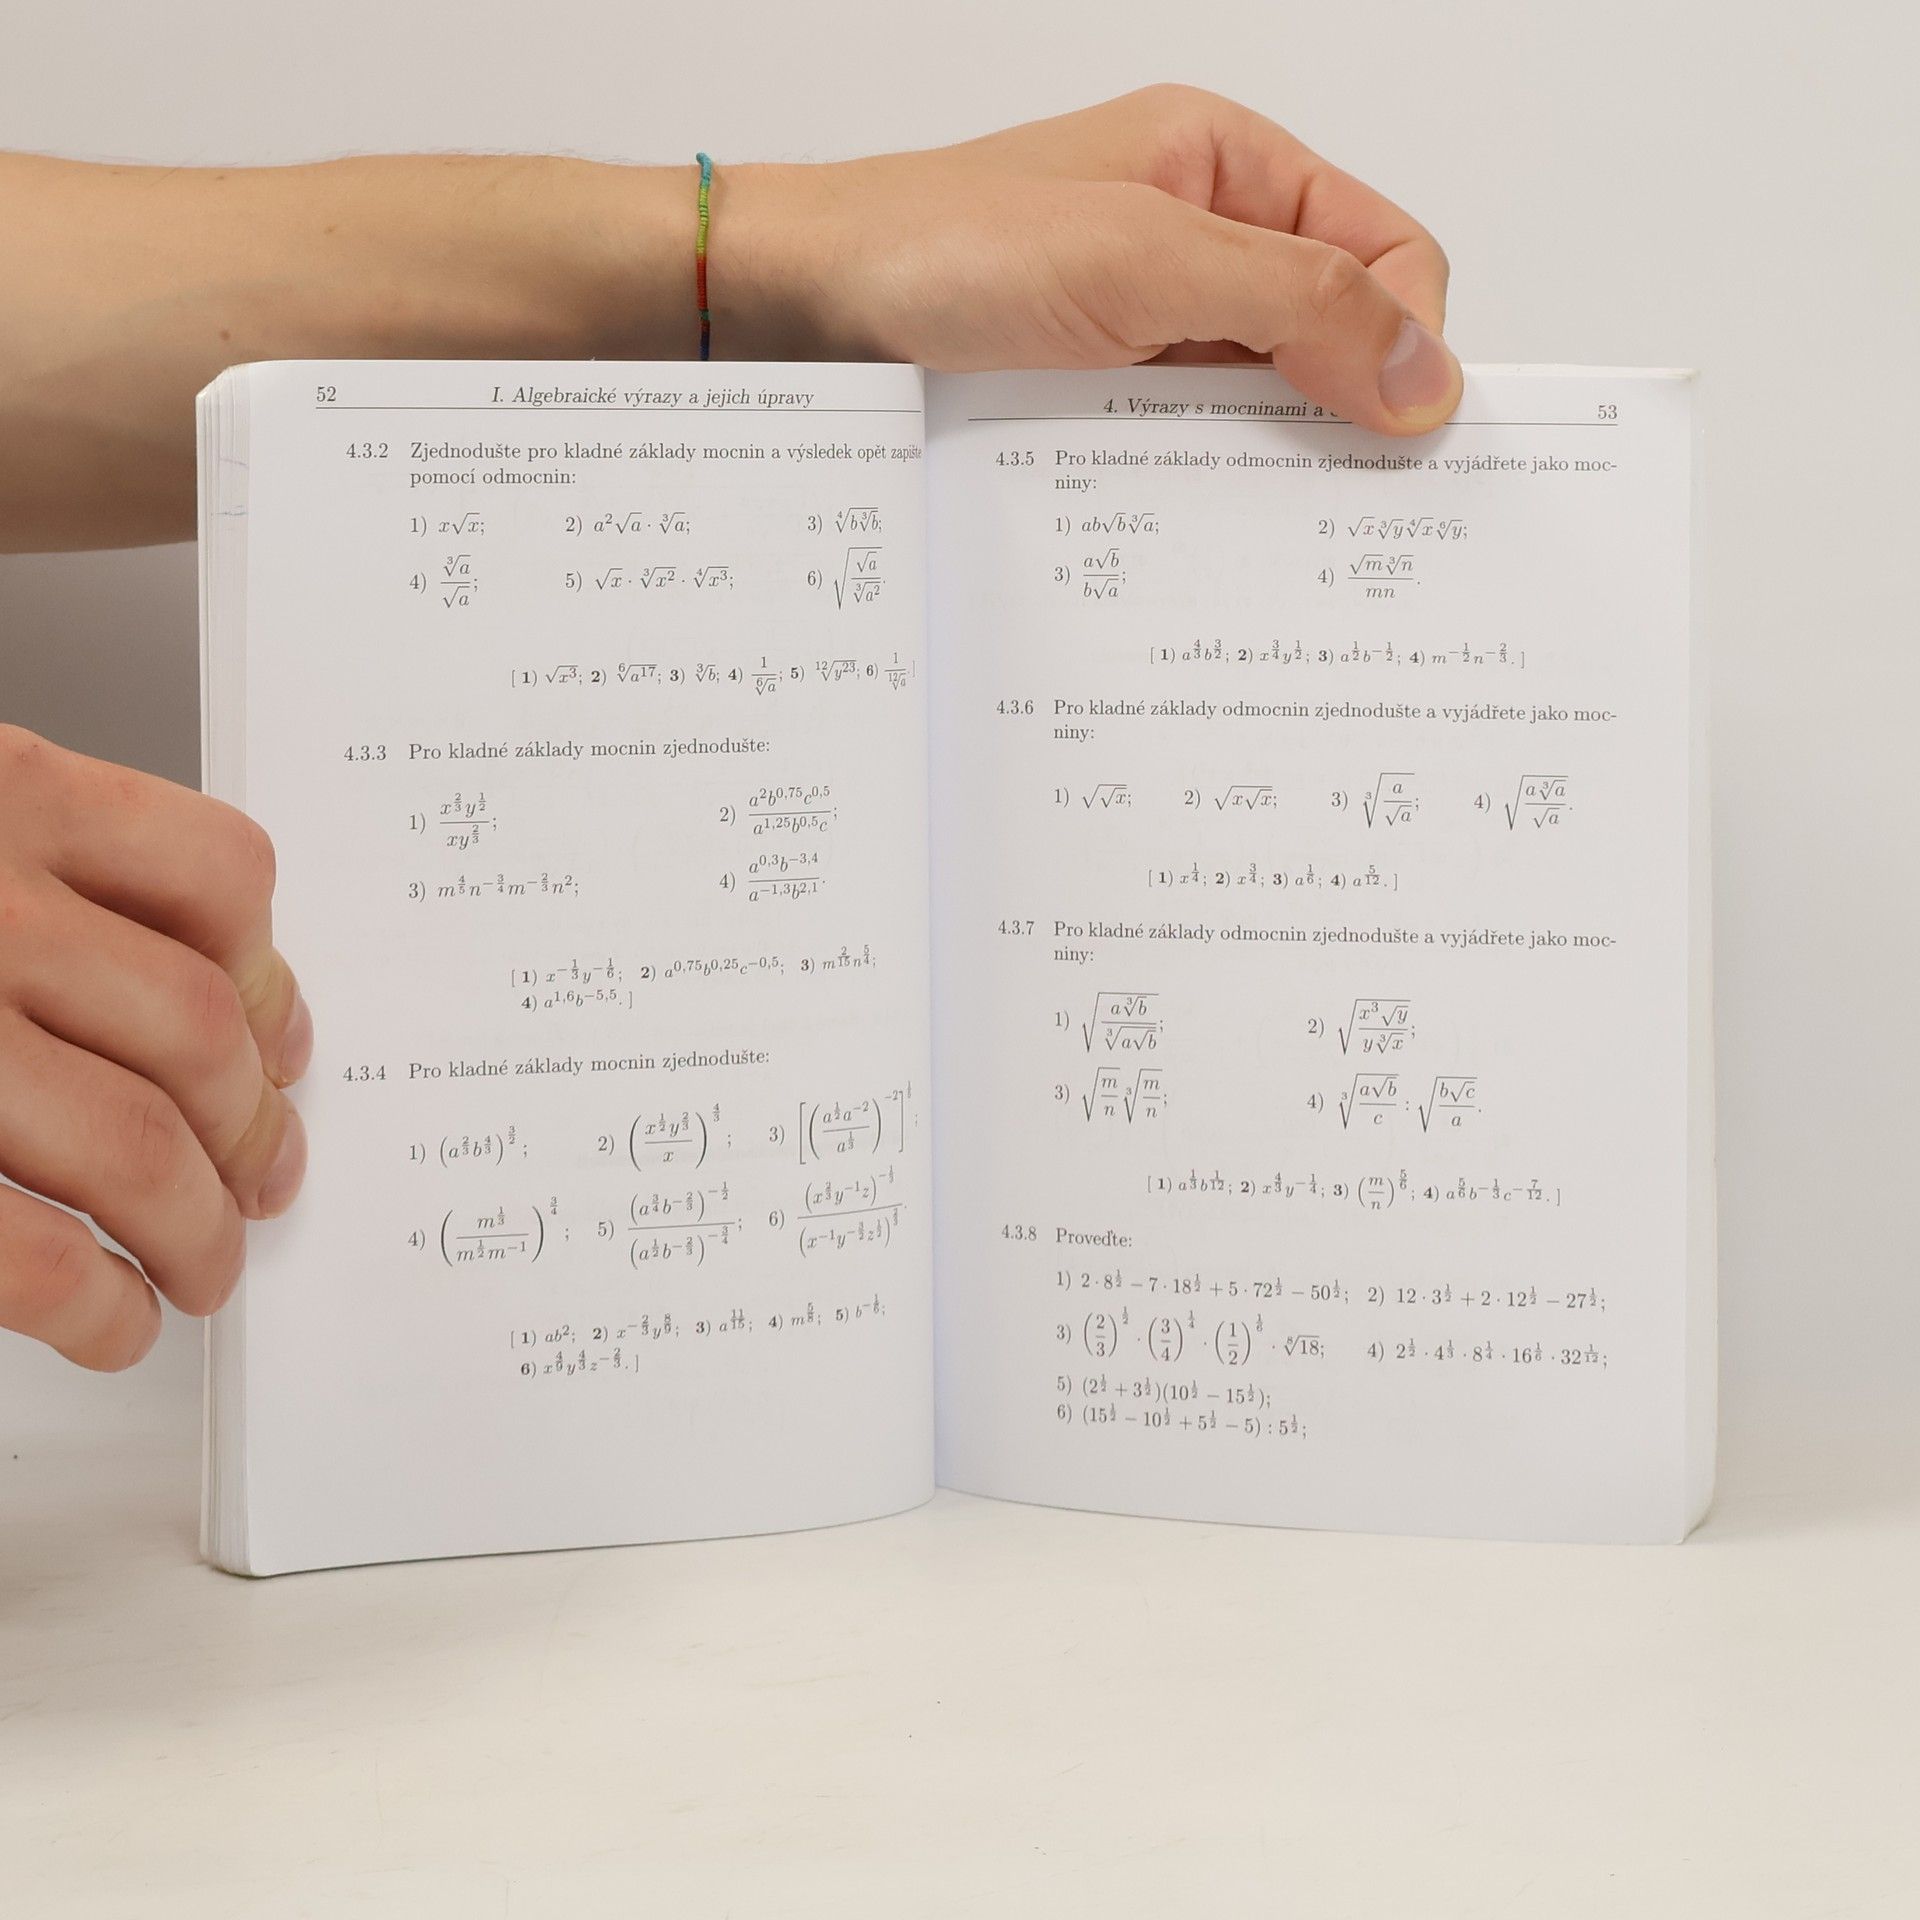 52
I. Algebraické výrazy a jejich úpravy
4.3.2 Zjednodušte pro kladné základy mocnin a výsledek opět zapište
pomocí odmocnin:
1) x√x; 2) a²√a · ∛a; 3) ∜(b∛b);
4) ∛a/√a; 5) √x · ∛(x²) · ∜(x³); 6) √(√a/∛(a²)).
[ 1) √(x³); 2) ⁶√(a¹⁷); 3) ∛b; 4) 1/⁶√a; 5) ¹²√(y²³); 6) 1/¹²√a. ]
4.3.3 Pro kladné základy mocnin zjednodušte:
1) x^(2/3)y^(1/2)/(xy^(2/3)); 2) a²b^(0,75)c^(0,5)/(a^(1,25)b^(0,5)c);
3) m^(4/5)n^(-3/4)m^(-2/3)n²; 4) a^(0,3)b^(-3,4)/(a^(-1,3)b^(2,1)).
[ 1) x^(-1/3)y^(-1/6); 2) a^(0,75)b^(0,25)c^(-0,5); 3) m^(2/15)n^(5/4);
4) a^(1,6)b^(-5,5). ]
4.3.4 Pro kladné základy mocnin zjednodušte:
1) (a^(2/3)b^(4/3))^(3/2); 2) (x^(1/2)y^(2/3)/x)^(4/3); 3) [(a^(1/2)a^(-2)/a^(1/3))^(-2)]^(1/5);
4) (m^(1/3)/(m^(1/2)m^(-1)))^(3/4); 5) (a^(3/4)b^(-2/3))^(-1/2)/(a^(1/2)b^(-2/3))^(-3/4); 6) (x^(2/3)y^(-1)z)^(-1/3)/(x^(-1)y^(-3/2)z^(1/2))^(2/3).
[ 1) ab²; 2) x^(-2/3)y^(8/9); 3) a^(11/15); 4) m^(5/8); 5) b^(-1/6);
6) x^(4/9)y^(4/3)z^(-2/3). ]
4. Výrazy s mocninami a
53
4.3.5 Pro kladné základy odmocnin zjednodušte a vyjádřete jako moc-
niny:
1) ab√b∛a; 2) √x∛y∜x⁶√y;
3) a√b/(b√a); 4) √m∛n/(mn).
[ 1) a^(4/3)b^(3/2); 2) x^(3/4)y^(1/2); 3) a^(1/2)b^(-1/2); 4) m^(-1/2)n^(-2/3). ]
4.3.6 Pro kladné základy odmocnin zjednodušte a vyjádřete jako moc-
niny:
1) √(√x); 2) √(x√x); 3) ∛(a/√a); 4) √(a∛a/√a).
[ 1) x^(1/4); 2) x^(3/4); 3) a^(1/6); 4) a^(5/12). ]
4.3.7 Pro kladné základy odmocnin zjednodušte a vyjádřete jako moc-
niny:
1) √(a∛b/∛(a√b)); 2) √(x³√y/(y∛x));
3) √(m/n)∛(m/n); 4) ∛(a√b/c) : √(b√c/a).
[ 1) a^(1/3)b^(1/12); 2) x^(4/3)y^(-1/4); 3) (m/n)^(5/6); 4) a^(5/6)b^(-1/3)c^(-7/12). ]
4.3.8 Proveďte:
1) 2 · 8^(1/2) − 7 · 18^(1/2) + 5 · 72^(1/2) − 50^(1/2); 2) 12 · 3^(1/2) + 2 · 12^(1/2) − 27^(1/2);
3) (2/3)^(1/2) · (3/4)^(1/4) · (1/2)^(1/6) · ⁸√18; 4) 2^(1/2) · 4^(1/3) · 8^(1/4) · 16^(1/6) · 32^(1/12);
5) (2^(1/2) + 3^(1/2))(10^(1/2) − 15^(1/2));
6) (15^(1/2) − 10^(1/2) + 5^(1/2) − 5) : 5^(1/2);